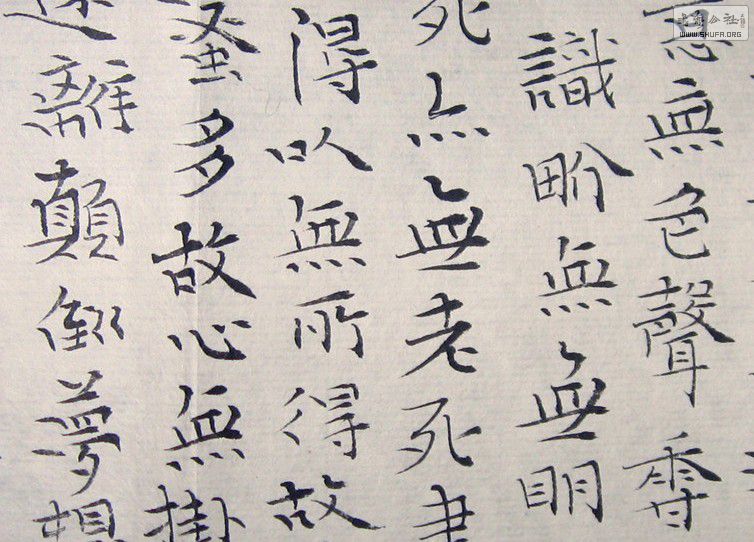 意無色聲香
識畍無無明
死亦無老死盡
得以無所得故
蜜多故心無掛
遠離顛倒夢想
WWW.SHUFA.ORG